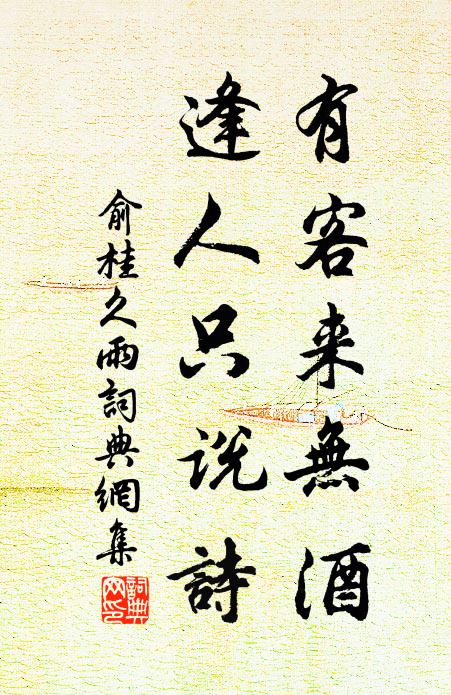 有客来無酒
逢人只説詩
俞桂久雨詞典網集
詞典网印